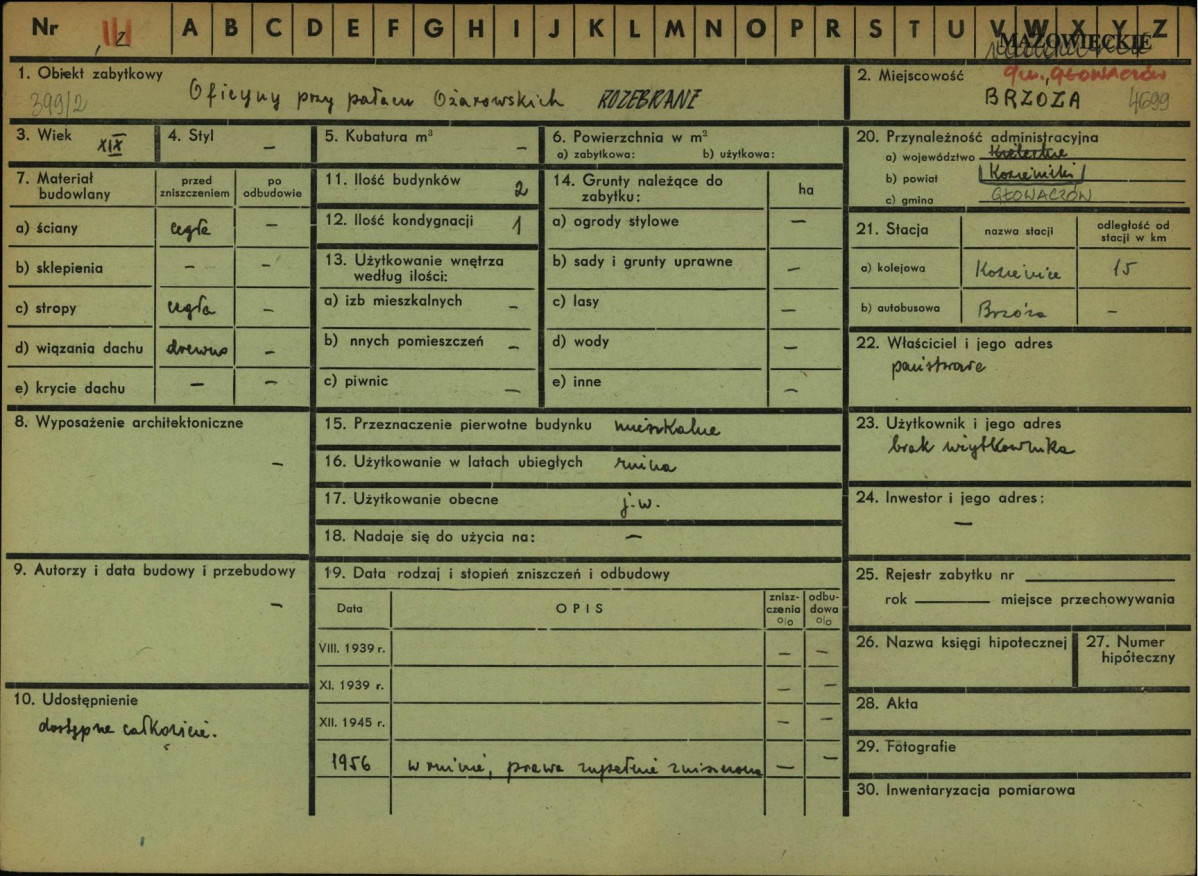 Nr III 2 A B C D E F G H I J K L M N O P R S T U V W X Y Z
MAZOWIECKIE
1. Obiekt zabytkowy
399/2 Oficyny przy pałacu Ożarowskich ROZEBRANE
2. Miejscowość gm. GŁOWACZÓW
BRZOZA 4699
3. Wiek XIX
4. Styl —
5. Kubatura m³ —
6. Powierzchnia w m²
a) zabytkowa: b) użytkowa:
7. Materiał budowlany
przed zniszczeniem
po odbudowie
a) ściany cegła —
b) sklepienia — —
c) stropy cegła —
d) wiązania dachu drewno —
e) krycie dachu — —
8. Wyposażenie architektoniczne
—
9. Autorzy i data budowy i przebudowy
—
10. Udostępnienie
dostępne całkowicie.
11. Ilość budynków 2
12. Ilość kondygnacji 1
13. Użytkowanie wnętrza
według ilości:
a) izb mieszkalnych —
b) nnych pomieszczeń —
c) piwnic —
14. Grunty należące do
zabytku: ha
a) ogrody stylowe —
b) sady i grunty uprawne —
c) lasy —
d) wody —
e) inne —
15. Przeznaczenie pierwotne budynku mieszkalne
16. Użytkowanie w latach ubiegłych ruina
17. Użytkowanie obecne j.w.
18. Nadaje się do użycia na: —
19. Data rodzaj i stopień zniszczeń i odbudowy
Data OPIS znisz-czenia o/o odbu-dowa o/o
VIII. 1939 r. — —
XI. 1939 r. — —
XII. 1945 r. — —
1956 w ruinie, prawa zupełnie zniszczona — —
20. Przynależność administracyjna
a) województwo Kieleckie
b) powiat Kozienicki
c) gmina GŁOWACZÓW
21. Stacja nazwa stacji odległość od stacji w km
a) kolejowa Kozienice 15
b) autobusowa Brzóza —
22. Właściciel i jego adres
państwowe
23. Użytkownik i jego adres
brak użytkownika
24. Inwestor i jego adres:
—
25. Rejestr zabytku nr
rok miejsce przechowywania
26. Nazwa księgi hipotecznej
27. Numer
hipóteczny
28. Akta
29. Fotografie
30. Inwentaryzacja pomiarowa